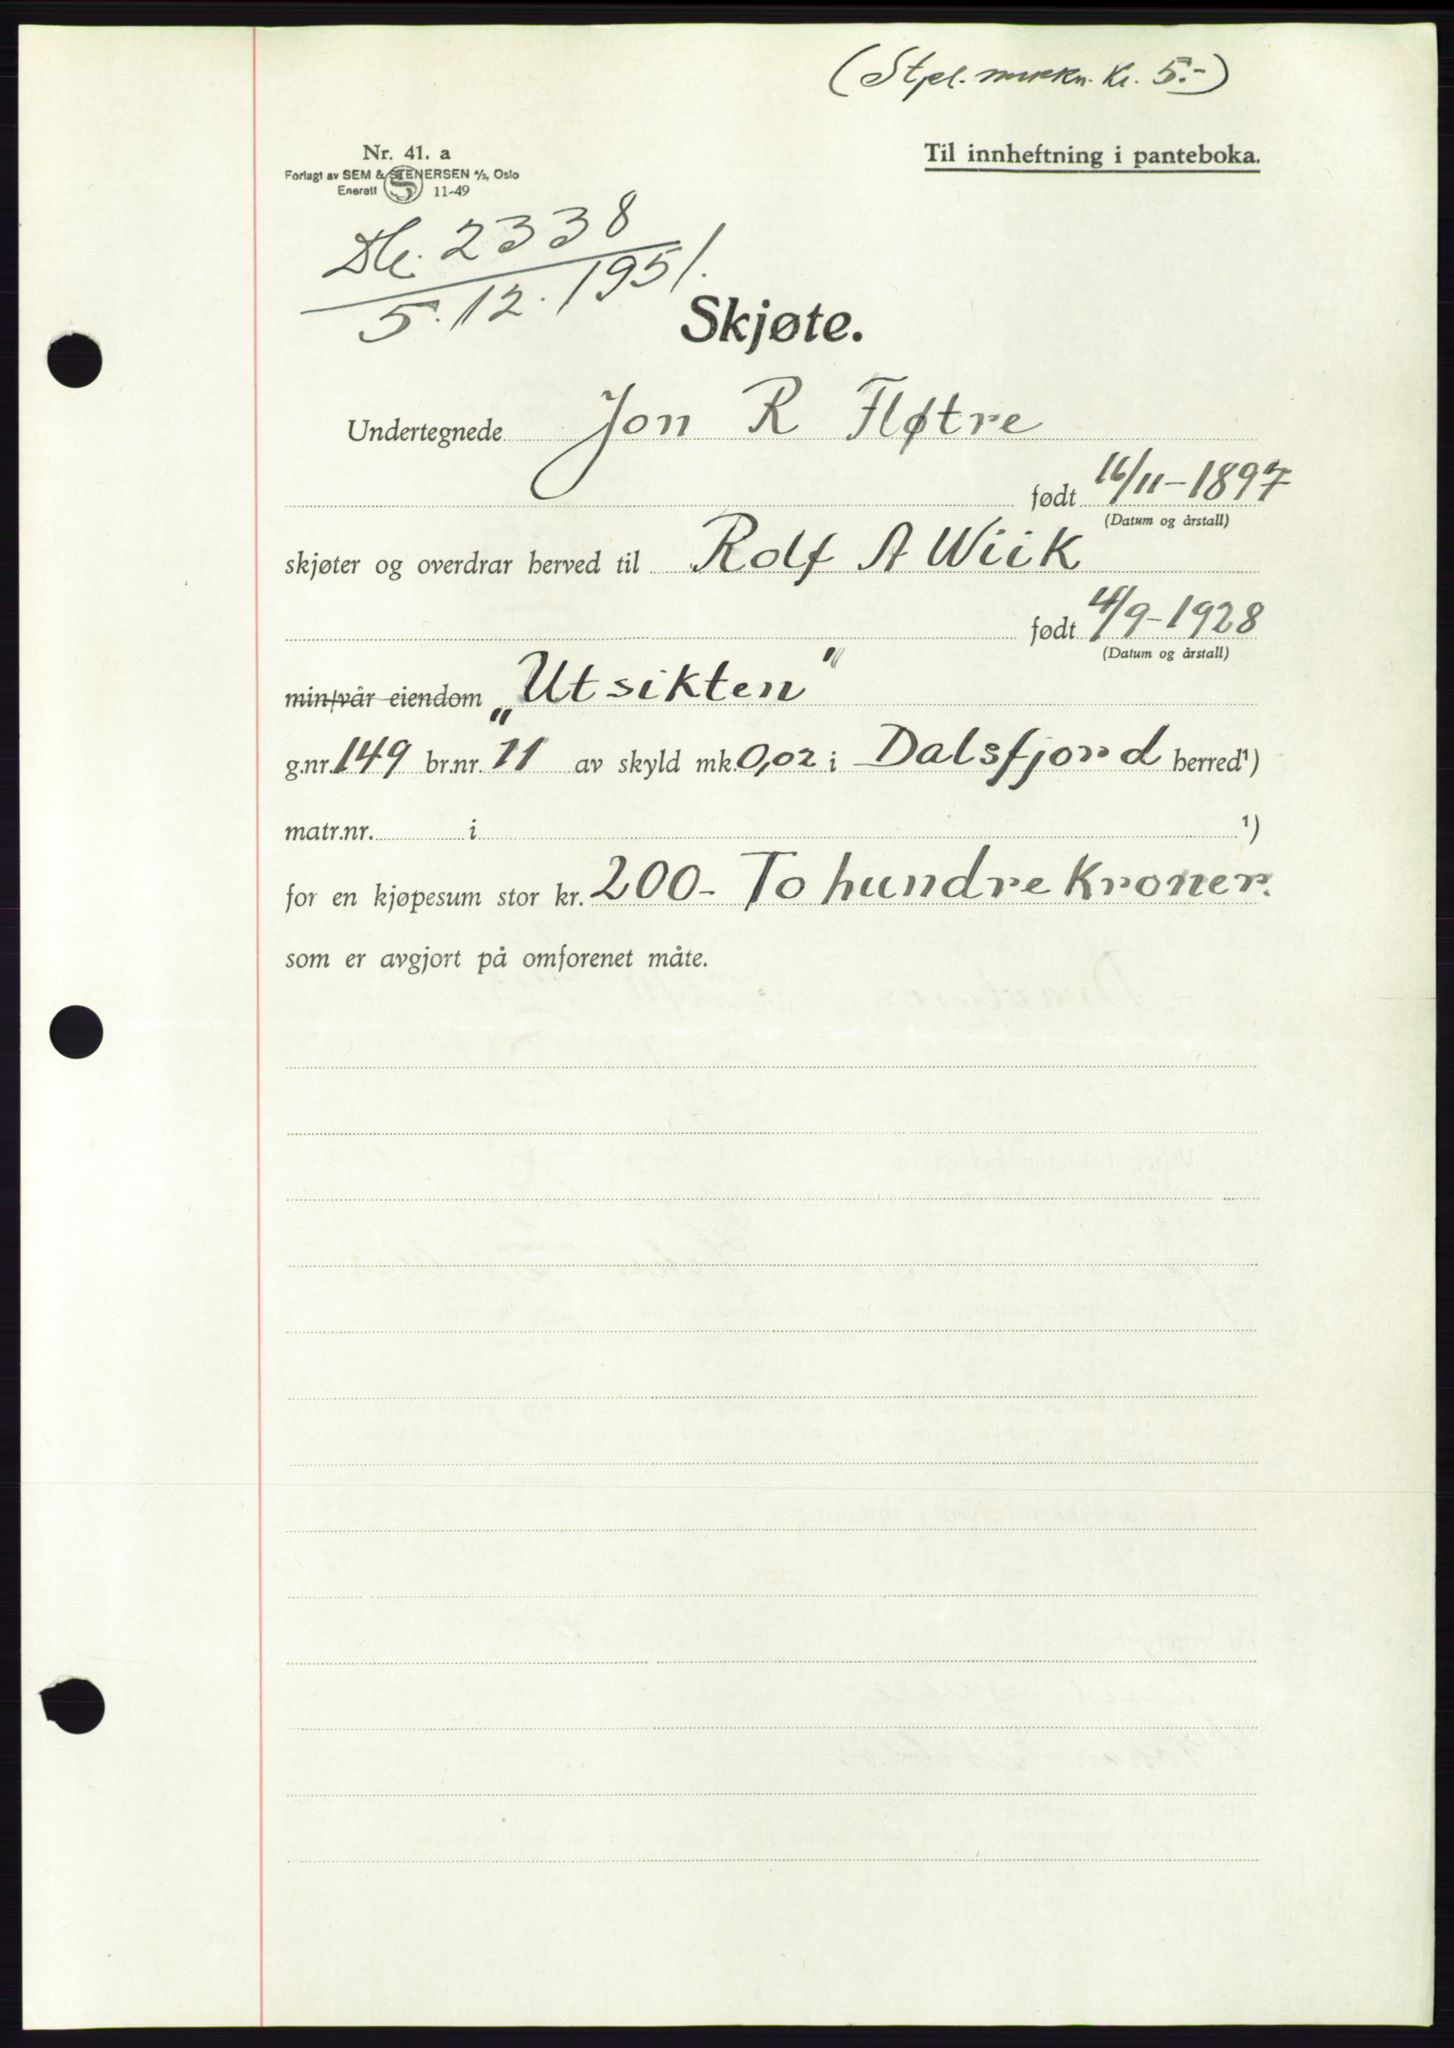 (Stpl. merkn. kr. 5.-)
Nr. 41. a
Til innheftning i panteboka.
Forlagt av SEM & STENERSEN A/S, Oslo
Enerett S 11-49
Db. 2338
5.12.1951.
Skjøte.
Undertegnede Jon R Fløtre
født 16/11-1897
(Datum og årstall)
skjøter og overdrar herved til Rolf A Wiik
født 4/9-1928
(Datum og årstall)
min/vår eiendom „Utsikten"
g.nr. 149 br.nr. 11 av skyld mk. 0,02 i Dalsfjord herred¹)
matr.nr. i ¹)
for en kjøpesum stor kr. 200- To hundre Kroner.
som er avgjort på omforenet måte.